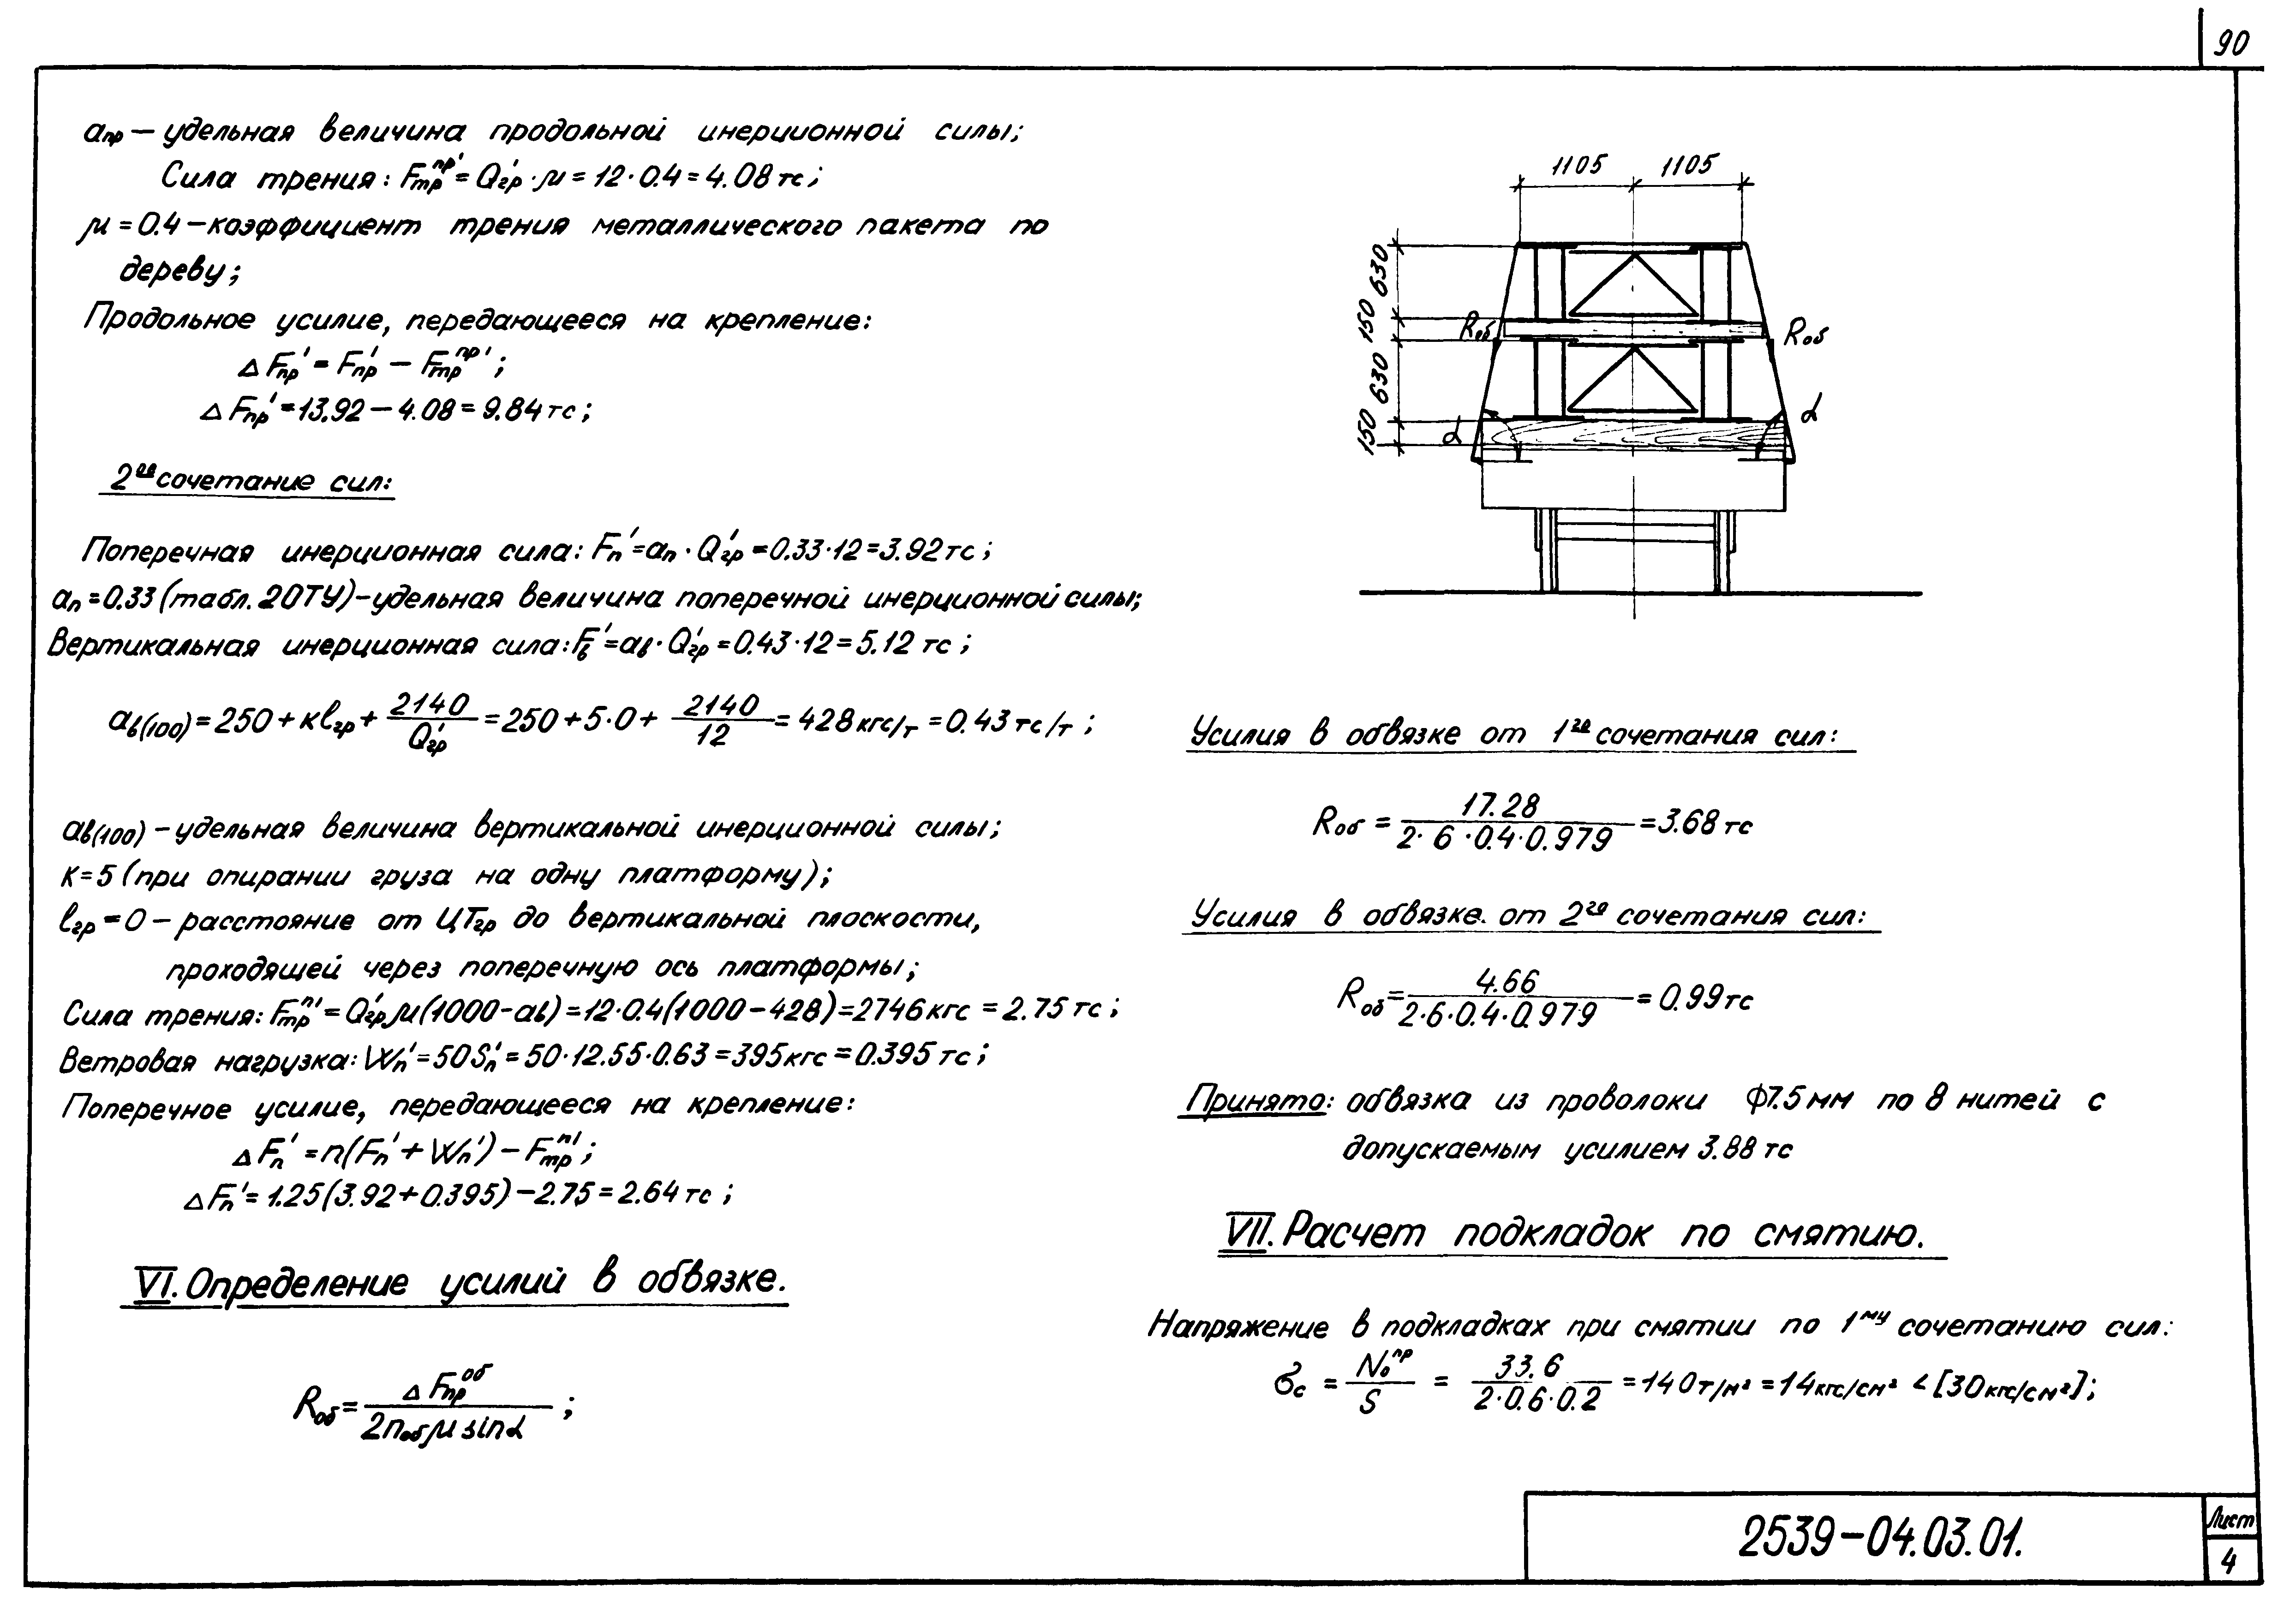 90
aпр — удельная величина продольной инерционной силы;
Сила трения: Fтр^пр' = Q'гр · μ = 12 · 0.4 = 4.08 тс;
μ = 0.4 — коэффициент трения металлического пакета по
дереву;
Продольное усилие, передающееся на крепление:
Δ Fпр' = F'пр — Fтр^пр';
Δ Fпр' = 13.92 — 4.08 = 9.84 тс;
2ое сочетание сил:
Поперечная инерционная сила: Fп' = aп · Q'гр = 0.33 · 12 = 3.92 тс;
aп = 0.33 (табл. 20ТУ) — удельная величина поперечной инерционной силы;
Вертикальная инерционная сила: Fв' = aв · Q'гр = 0.43 · 12 = 5.12 тс;
aв(100) = 250 + кℓгр + 2140/Q'гр = 250 + 5·0 + 2140/12 = 428 кгс/т = 0.43 тс/т;
aв(100) — удельная величина вертикальной инерционной силы;
к = 5 (при опирании груза на одну платформу);
ℓгр = 0 — расстояние от ЦТгр до вертикальной плоскости,
проходящей через поперечную ось платформы;
Сила трения: Fтр^п' = Q'гр μ (1000 - aв) = 12·0.4 (1000 — 428) = 2746 кгс = 2.75 тс;
Ветровая нагрузка: Wп' = 50Sп' = 50 · 12.55 · 0.63 = 395 кгс = 0.395 тс;
Поперечное усилие, передающееся на крепление:
Δ Fп' = n (Fп' + Wп') — Fтр^п';
Δ Fп' = 1.25 (3.92 + 0.395) — 2.75 = 2.64 тс;
VI. Определение усилий в обвязке.
Rоб = Δ Fпр^об / 2nоб μ sin α;
1105 1105
630
150
630
150
Rоб Rоб
α α
Усилия в обвязке от 1го сочетания сил:
Rоб = 17.28 / 2 · 6 · 0.4 · 0.979 = 3.68 тс
Усилия в обвязке от 2го сочетания сил:
Rоб = 4.66 / 2 · 6 · 0.4 · 0.979 = 0.99 тс
Принято: обвязка из проволоки ф7.5 мм по 8 нитей с
допускаемым усилием 3.88 тс
VII. Расчет подкладок по смятию.
Напряжение в подкладках при смятии по 1му сочетанию сил:
σс = N₀^пр / S = 33.6 / 2 · 0.6 · 0.2 = 140 т/м² = 14 кгс/см² < [30 кгс/см²];
2539—04.03.01.
Лист
4